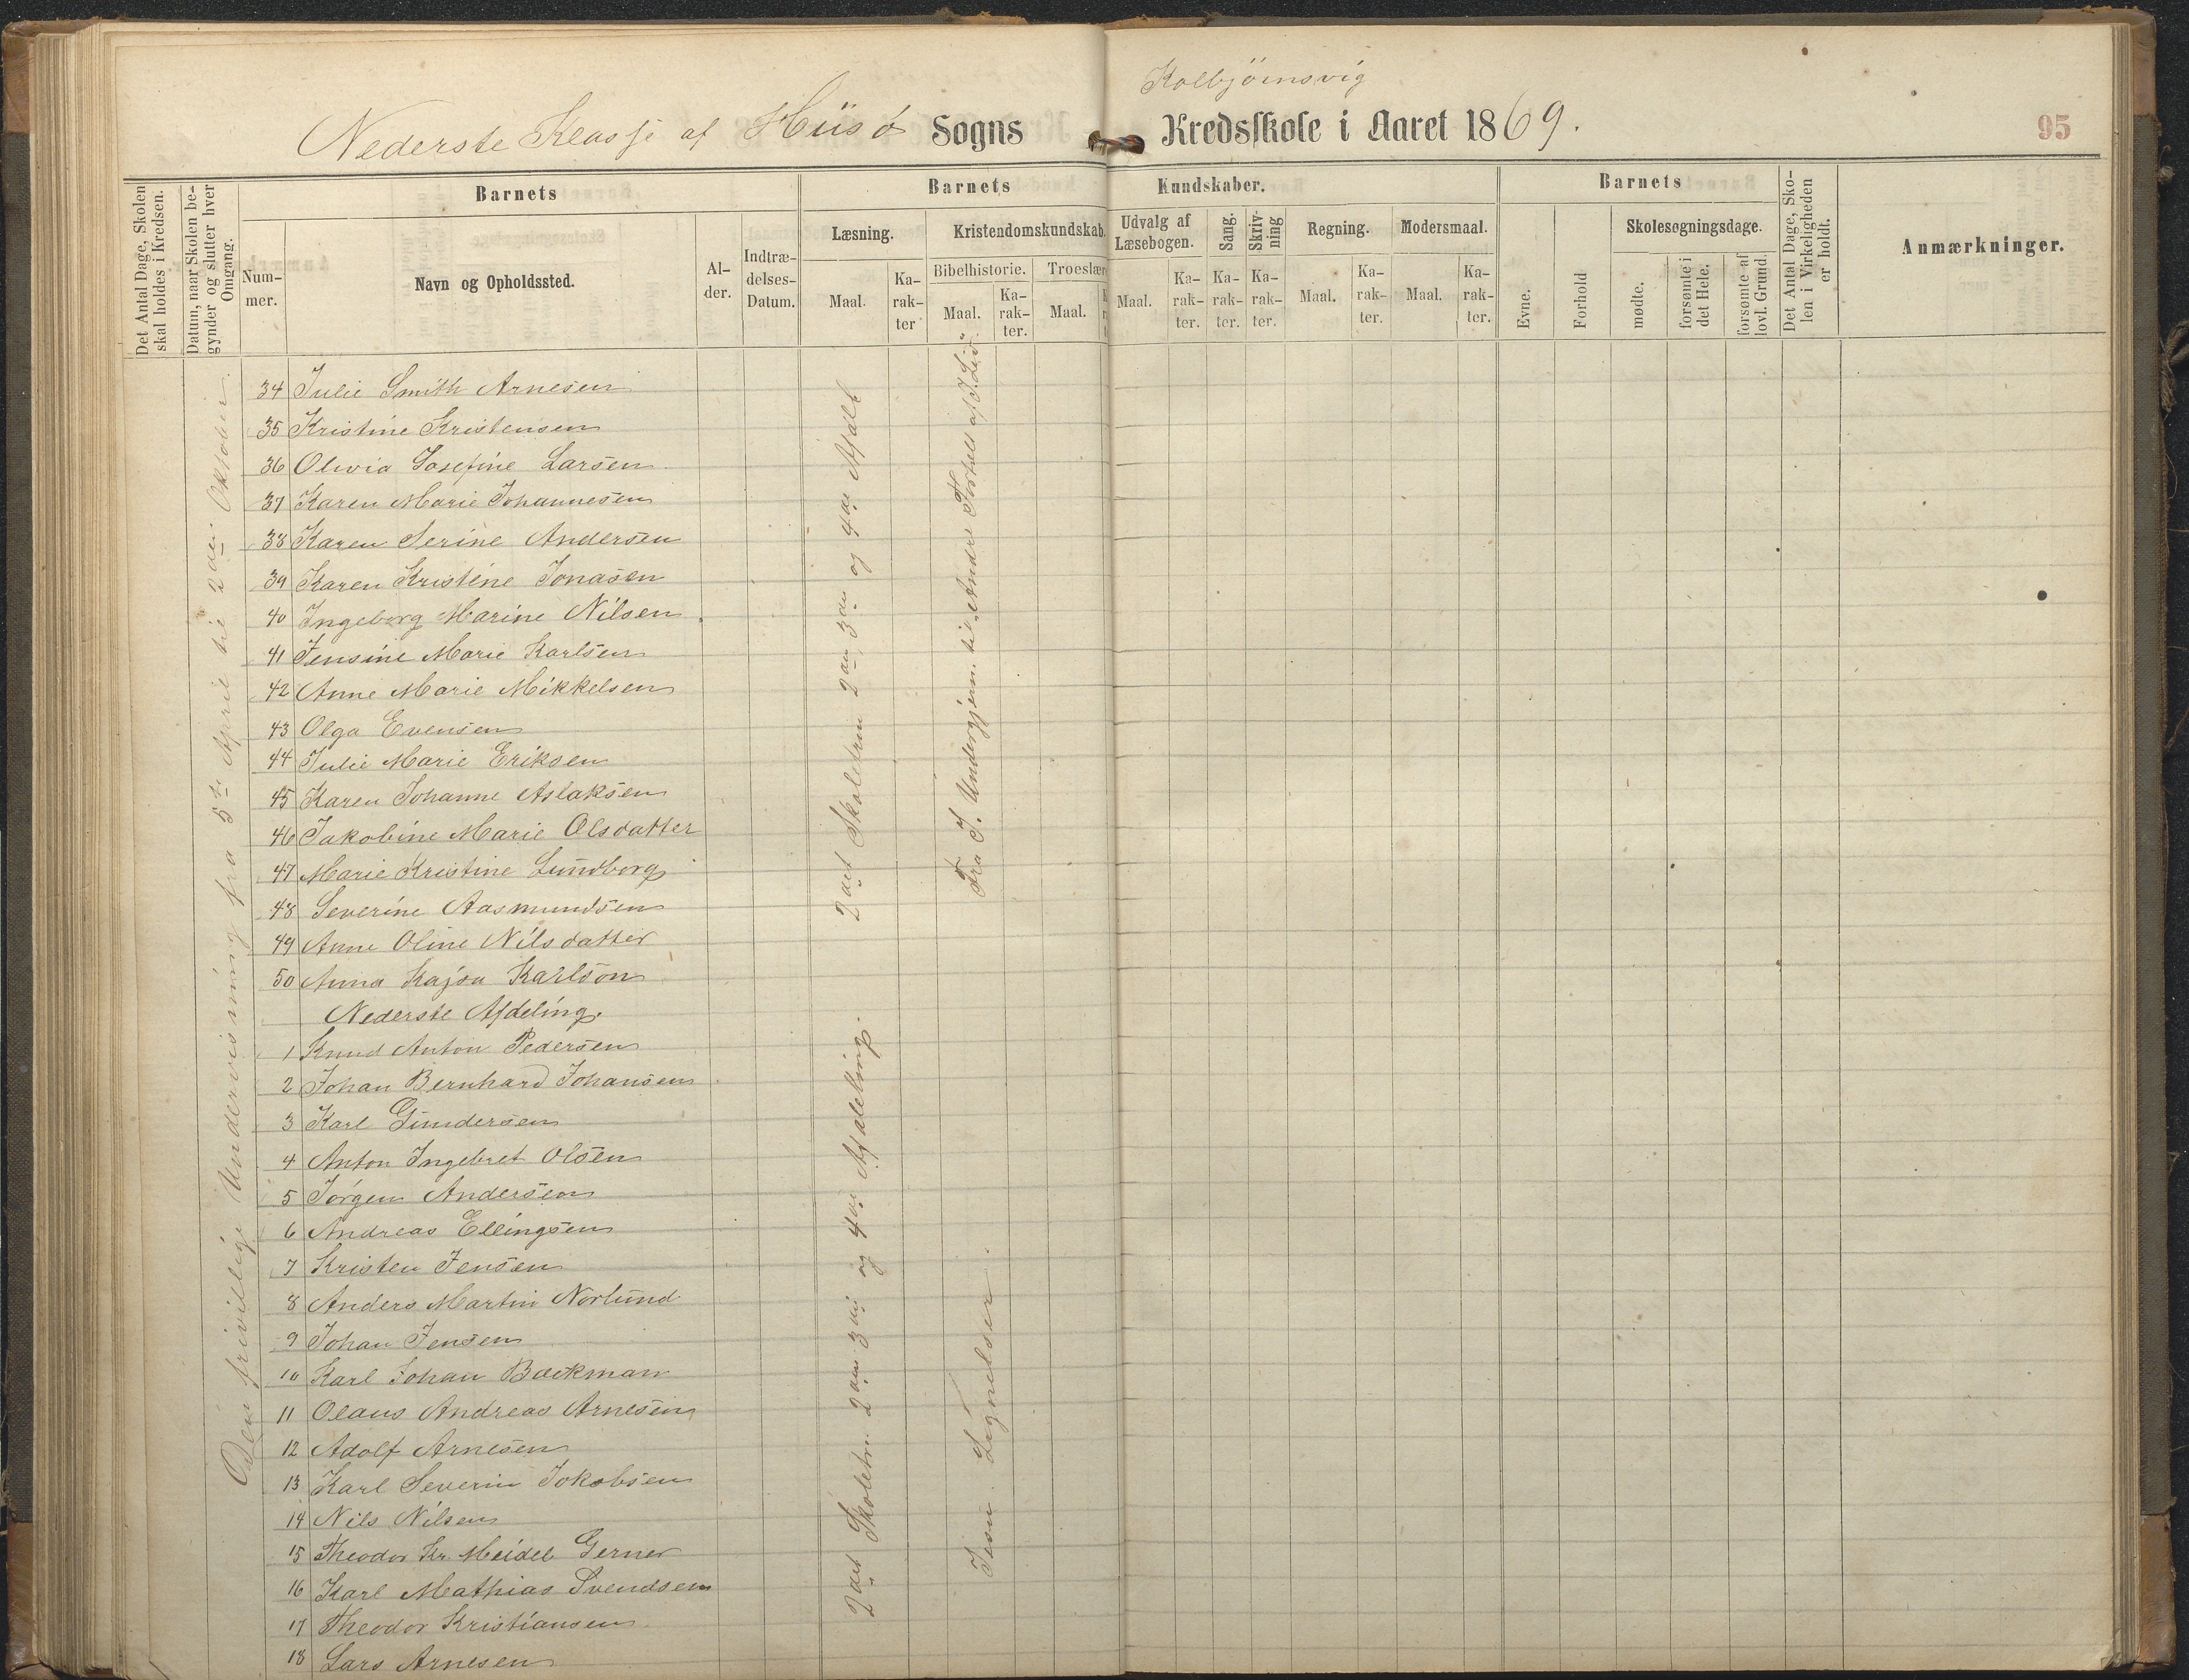 Kolbjörnsvig
Nederste Klasse af Hüsö Sogns Kredsskole i Aaret 1869.
95
Det Antal Dage, Skolen skal holdes i Kredsen.
Datum, naar Skolen begynder og slutter hver Omgang.
Barnets
Nummer.
Navn og Opholdssted.
Alder.
Indtrædelses-Datum.
Barnets Kundskaber.
Læsning.
Maal.
Karakter
Kristendomskundskab.
Bibelhistorie.
Maal.
Karakter.
Troeslær
Maal.
Udvalg af Læsebogen.
Maal.
Karakter.
Sang.
Karakter.
Skrivning
Karakter.
Regning.
Maal.
Karakter.
Modersmaal.
Maal.
Karakter.
Barnets
Evne.
Forhold
Skolesøgningsdage.
mødte.
forsømte i det Hele.
forsømte af lovl. Grund.
Det Antal Dage, Skolen i Virkeligheden er holdt.
Anmærkninger.
Den frivillige Undervisning fra 5te April til 2den Oktober.
34 Julie Smith Arnesen
35 Kristine Kristensen
36 Olivia Josefine Larsen
37 Karen Marie Johannesen
38 Karen Serine Andersen
39 Karen Kristine Jonasen
40 Ingeborg Marine Nilsen
41 Jensine Marie Karlsen
42 Anne Marie Mikkelsen
43 Olga Evensen
44 Julie Marie Eriksen
45 Karen Johanne Aslaksen
46 Jakobine Marie Olsdatter
47 Marie Kristine Lundborg
48 Severine Aasmundsen
49 Anne Oline Nilsdatter
50 Anna Kajsa Karlson
2det Skoletrin 2den 3die og 4de Afdel
Fra J. Undergjern. til „Andre Fortæll af J. Liv"
Nederste Afdeling.
1 Knud Anton Pedersen
2 Johan Bernhard Johansen
3 Karl Gundersen
4 Anton Ingebret Olsen
5 Jörgen Andersen
6 Andreas Ellingsen
7 Kristen Jensen
8 Anders Martin Norlund
9 Johan Jensen
10 Karl Johan Backman
11 Olaus Andreas Arnesen
12 Adolf Arnesen
13 Karl Severin Jakobsen
14 Nils Nilsen
15 Theodor Kr. Meidel Gerner
16 Karl Mathias Svendsen
17 Theodor Kristiansen
18 Lars Arnesen
2det Skoletrin 2den 3die og 4de Afdeling.
Jesu Lignelser.